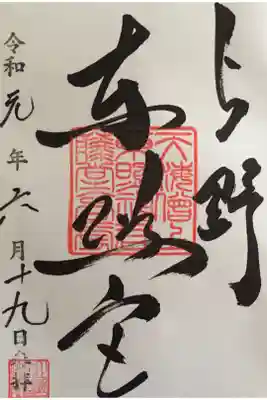 上野
東照宮
令和元年六月十九日参拝